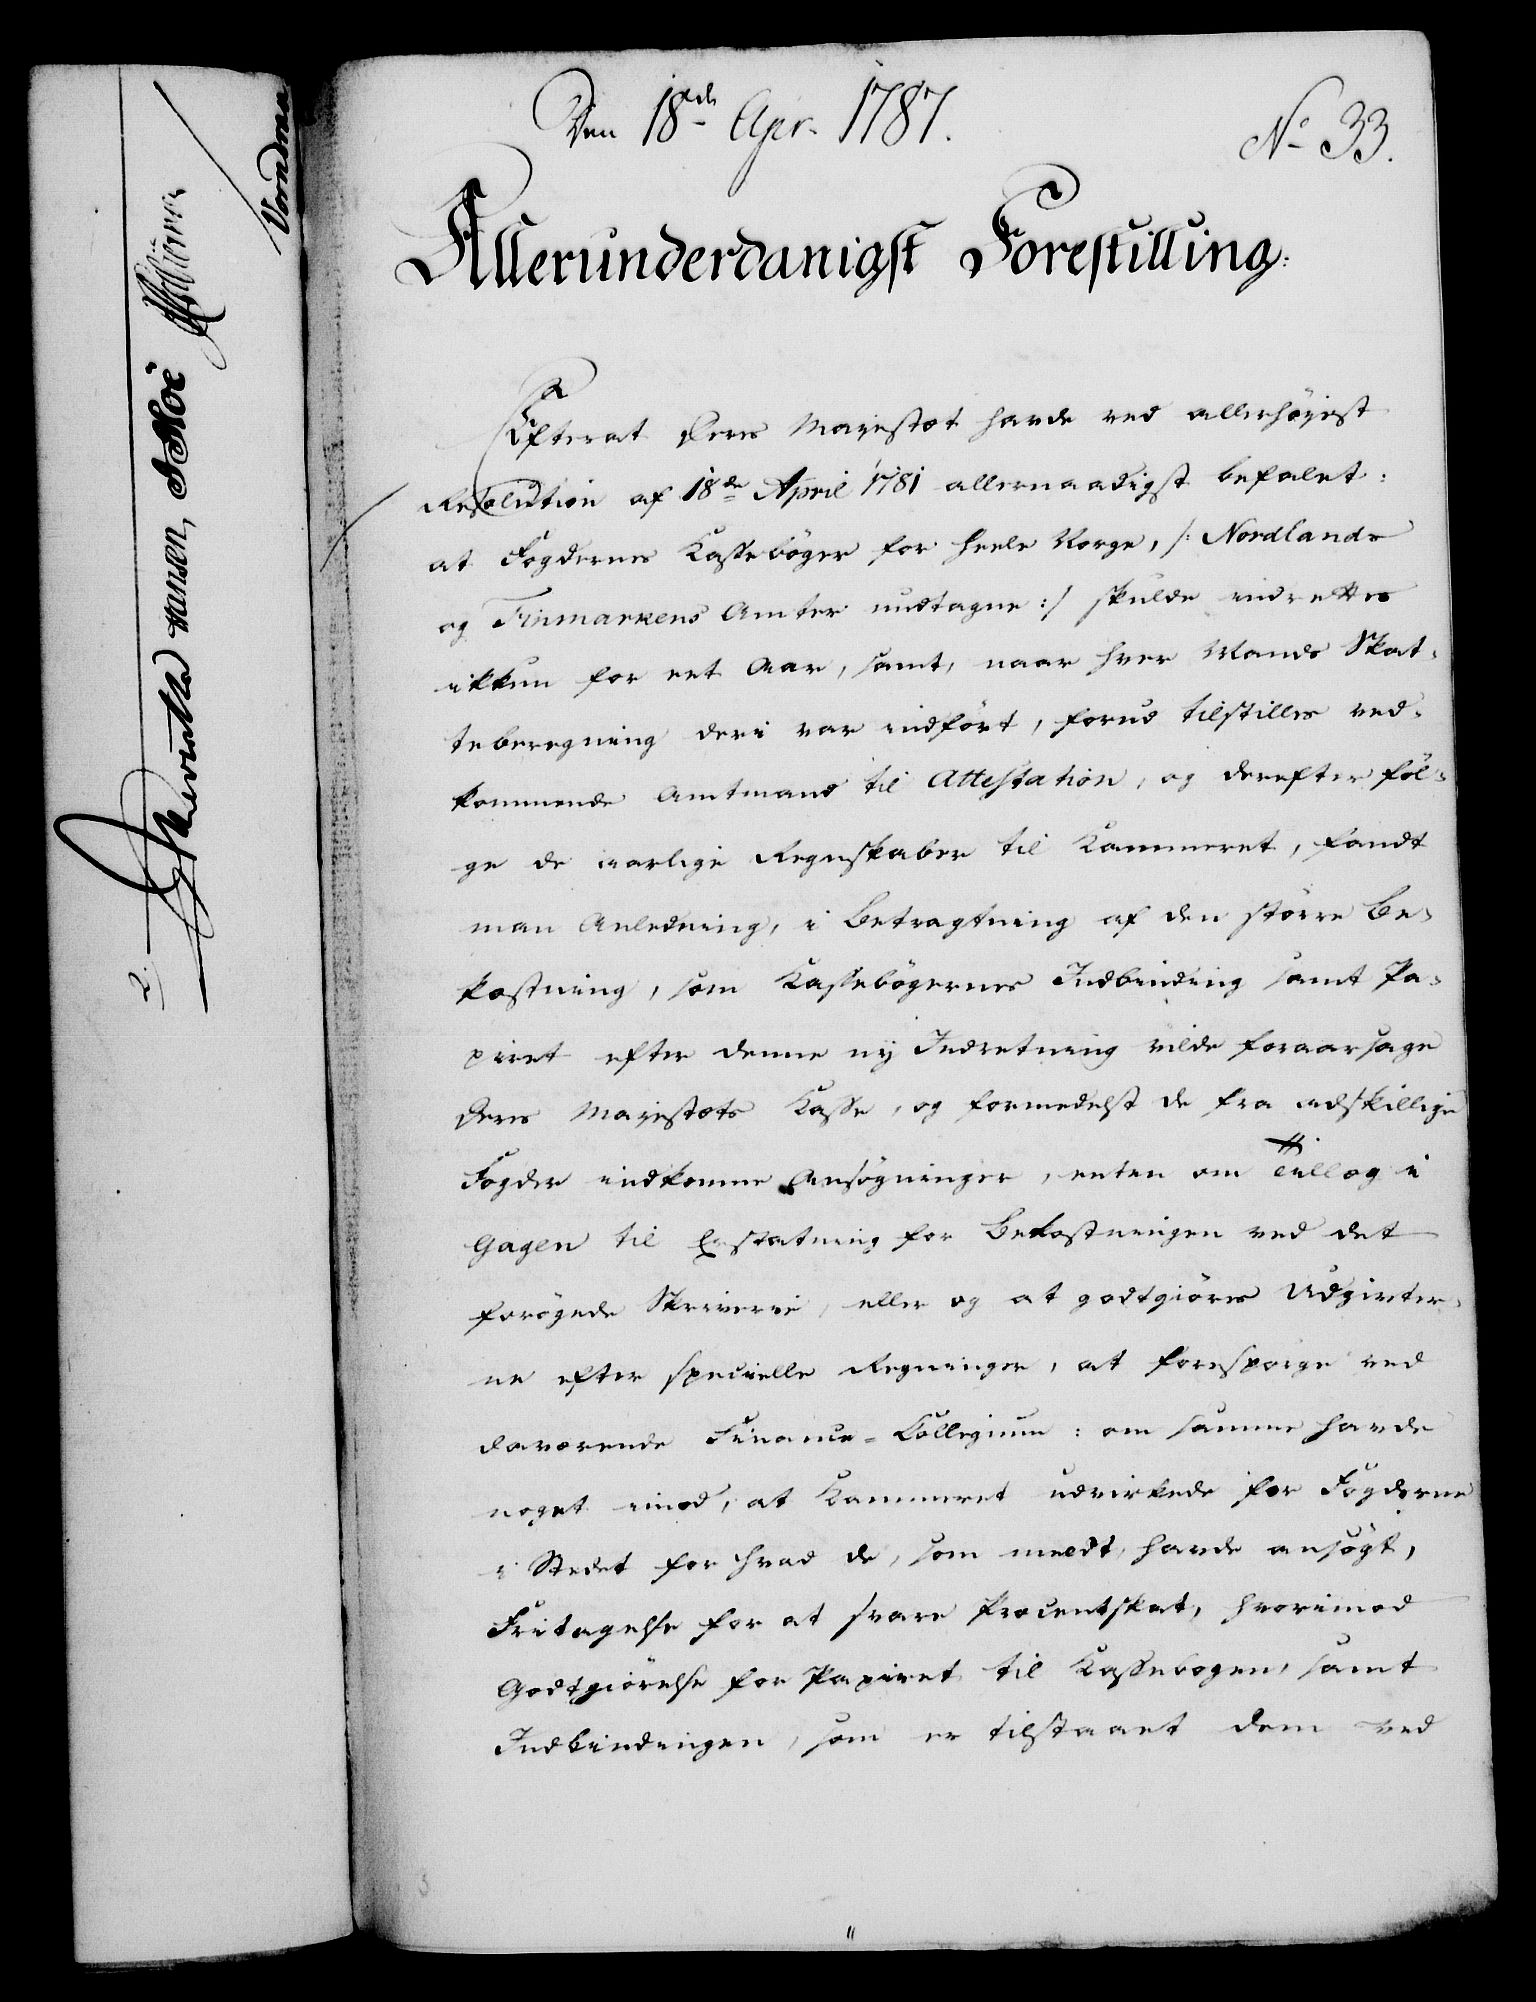 Den 18de Apr. 1787.
No 33.
Allerunderdanigst Forestilling.
Efterat Deres Majestæt havde ved allerhöjest
Resolution af 18de April 1781 allernaadigst befalet:
at Fogdernes Kassebøger for heele Norge, /: Nordlands
og Finmarkens Amter undtagne :/ skulde indrettes
ikkun for eet Aar, samt, naar hver Mands Skat-
teberegning deri var indført, forud tilstilles ved-
kommende Amtmand til Attestation, og derefter føl-
ge de aarlige Regnskaber til Kammeret, fandt
man Anledning, i Betragtning af den større Be-
kostning, som Kassebøgernes Indbinding samt Pa-
piret efter denne ny Indretning vilde foraarsage
Deres Majestæts Kasse, og formedelst de fra adskillige
Fogder indkomne Ansøgninger, enten om Tillæg i
Gagen til Erstatning for Bekostningen ved det
forøgede Skriverie, eller og at godtgiøres Udgivter-
ne efter specielle Regninger, at forespørge ved
daværende Finance-Collegium: om samme havde
noget imod, at Kammeret udvirkede for Fogderne
i Stedet for hvad de, som meldt, havde ansøgt,
Fritagelse for at svare Procentskat, hvorimod
Godtgiørelse for Papiret til Kassebogen, samt
Indbindingen, som er tilstaaet dem ved